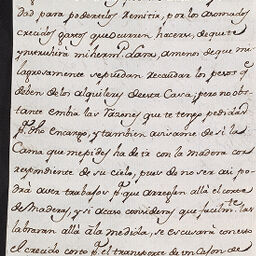 dad para poderselos remitir, por los asomados
crecidos gastos que ocurren hacerse, de que te
ynstruhirá mi herm.ª Clara, a menos de que mi
lagrosamente se puedan recaudar los pesos q.e
deben de los alquileres de esta Casa; pero no obs
tante embia las razones que te tengo pedidas
p.r dho encargo, y tambien avisame de si la
Cama que me pides ha de ir con la madera cor
respondiente de su cielo, pues de no ser asi po
drá aver trabajos p.a que arreglen allá el corte
de Maderas, y si acaso consideras que facilm.te
labraran allá à la medida, se escusará con esto
el crecido costo p.r el transporte de un Caxon de